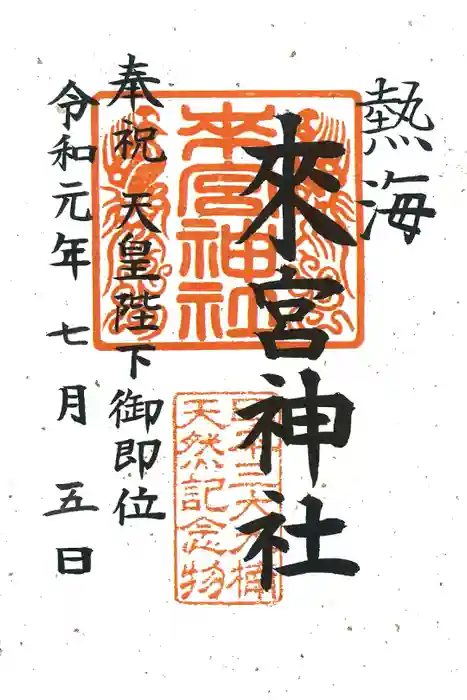 熱海
來宮神社
奉祝 天皇陛下御即位
令和元年 七月 五日
来宮神社
天然記念物